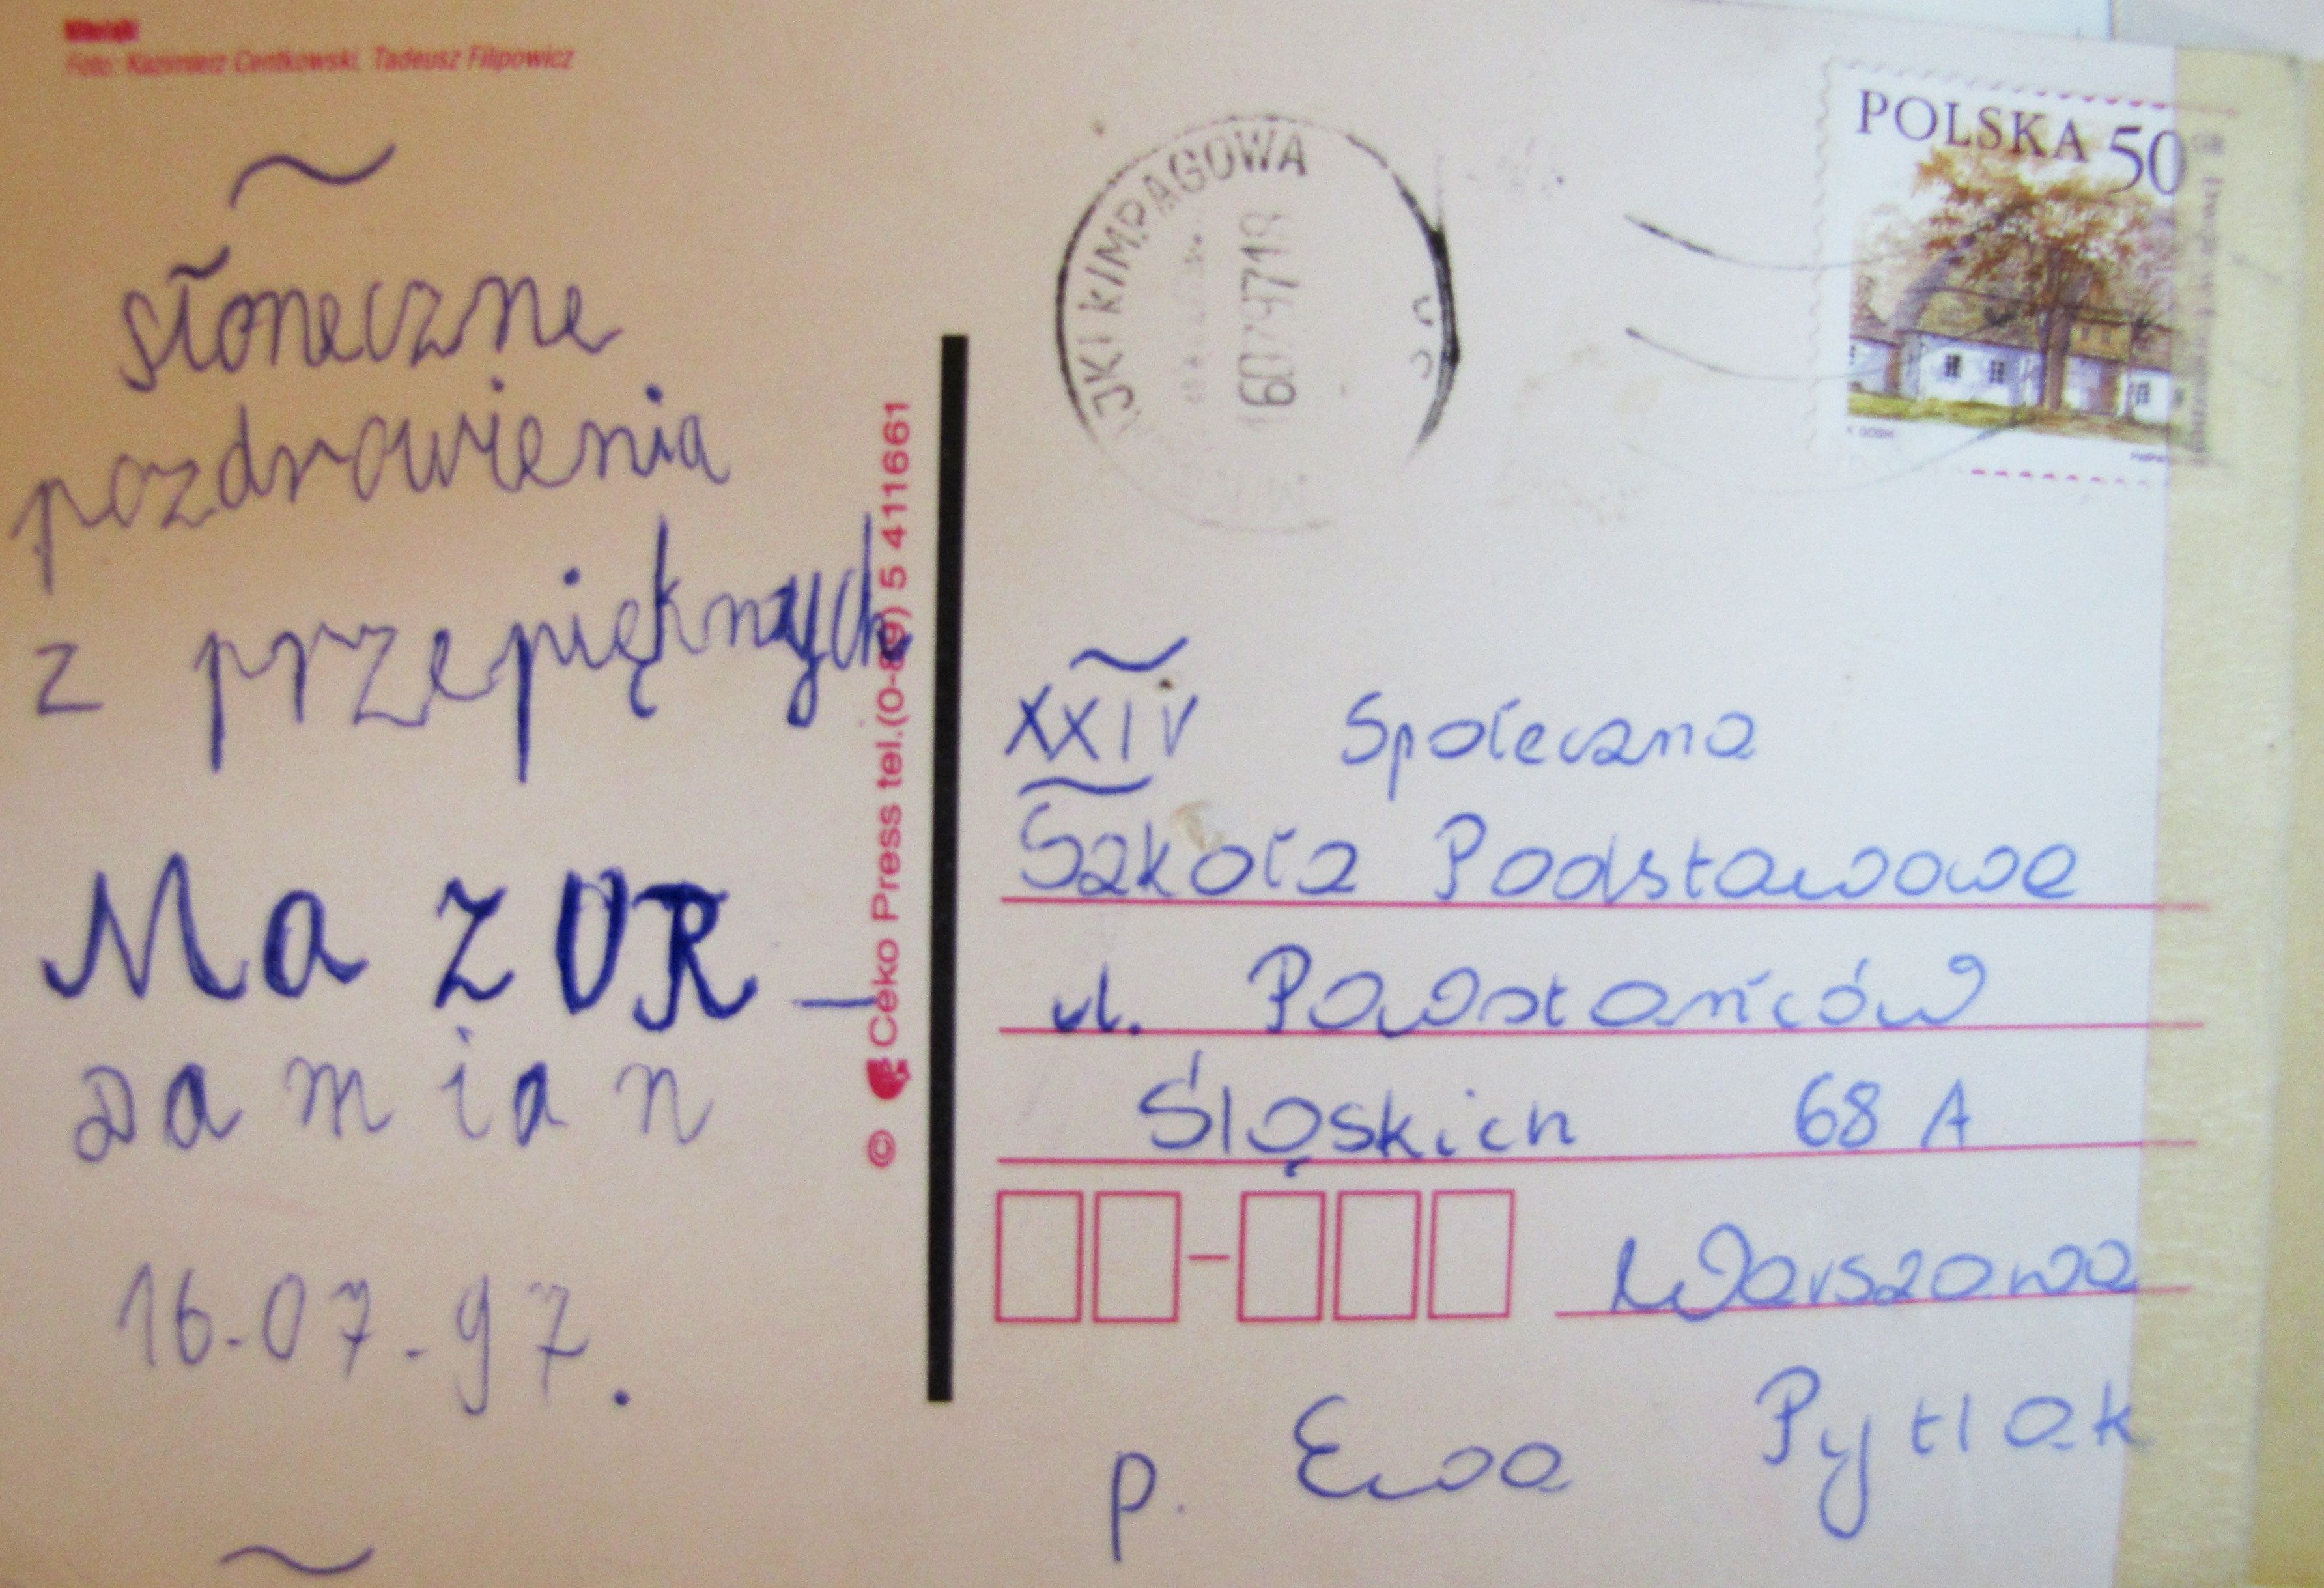 Mikołajki
Foto: Kazimierz Centkowski, Tadeusz Filipowicz
słoneczne
pozdrowienia
z przepięknych
MaZUR_
Damian
16.07.97.
© Ceko Press tel.(0-89) 5 411661
KIMPAGOWA
POLSKA 50
XXIV Społeczna
Szkoła Podstawowa
ul. Powstańców
Śląskich 68 A
Warszawa
p. Ewa Pytlak